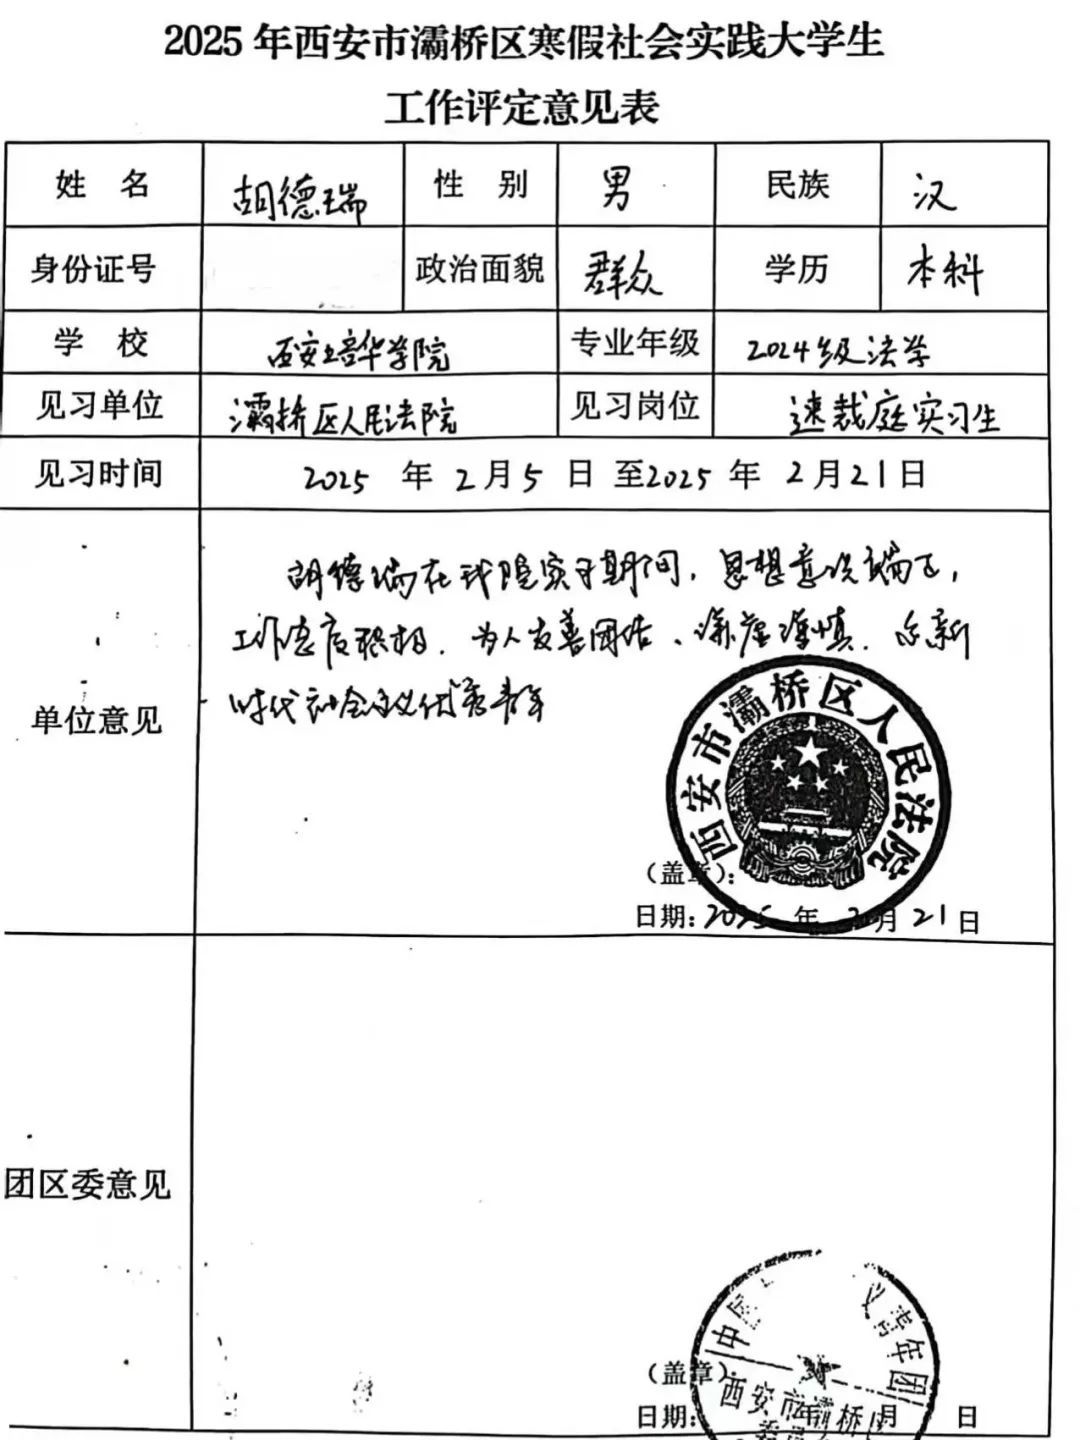 2025年西安市灞桥区寒假社会实践大学生
工作评定意见表
姓 名 胡德瑞 性 别 男 民族 汉
身份证号 政治面貌 群众 学历 本科
学 校 西安培华学院 专业年级 2024级法学
见习单位 灞桥区人民法院 见习岗位 速裁庭实习生
见习时间 2025 年 2月5 日 至2025 年 2月21日
单位意见
胡德瑞在我院实习期间，思想意识端正，
工作态度积极，为人友善团结、谦虚谨慎，
时代社会主义优秀青年
西安市灞桥区人民法院
（盖章）：
日期：2025 年 2月21日
团区委意见
中国 义青年团
西安市灞桥
（盖章）
日期： 年 月 日